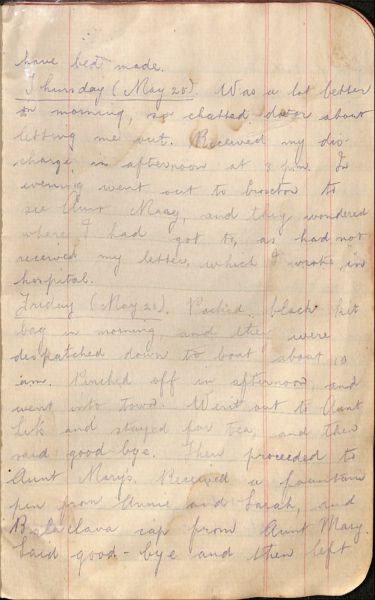 have bed made.
Thursday (May 20). Was a lot better
in morning, so chatted doctor about
letting me out. Received my dis-
charge in afternoon at 3 p.m. In
evening went out to Brocton to
see Aunt Mary, and they wondered
where I had got to, as had not
received my letter, which I wrote, in
hospital.
Friday (May 21). Packed black kit
bag in morning, and they were
despatched down to boat about 10
a.m. Pinched off in afternoon, and
went into town. Went out to Aunt
and stayed for tea, and then
said good bye. Then proceeded to
Aunt Marys. Received a fountain
pen from Annie and Sarah, and
Balaclava cap from Aunt Mary.
Said good-bye and then left